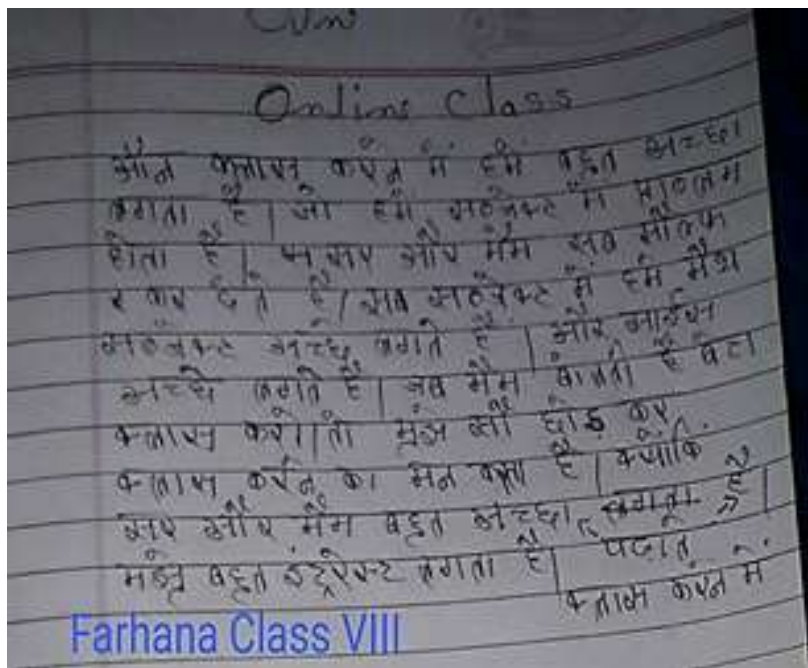 Online Class
औन क्लास करने में हमें बहुत अच्छा
लगता है। जो हमें सब्जेक्ट में प्रोब्लम
होता है। सर और मैम सब सौल्भ
र कर देते है। सब सब्जेक्ट में हमें मैथ
सब्जेक्ट अच्छे लगते हैं। और साईंस
अच्छे लगते हैं। जब मैम बोलती है बेटा
क्लास करो। तो मुझे सौ छोड़ कर
क्लास करने का मन करता है। क्योंकि
सर और मैम बहुत अच्छा पढ़ाते है।
मुझे बहुत इंट्रेस्ट लगता है।
क्लास करने में
Farhana Class VIII